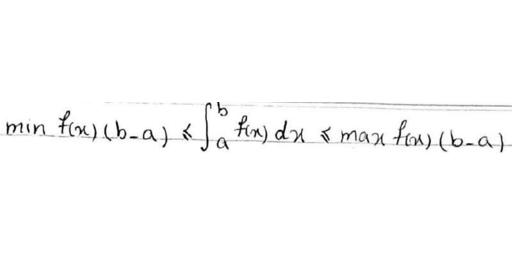 min f(x) (b-a) ≤ ∫_a^b f(x) dx ≤ max f(x) (b-a)